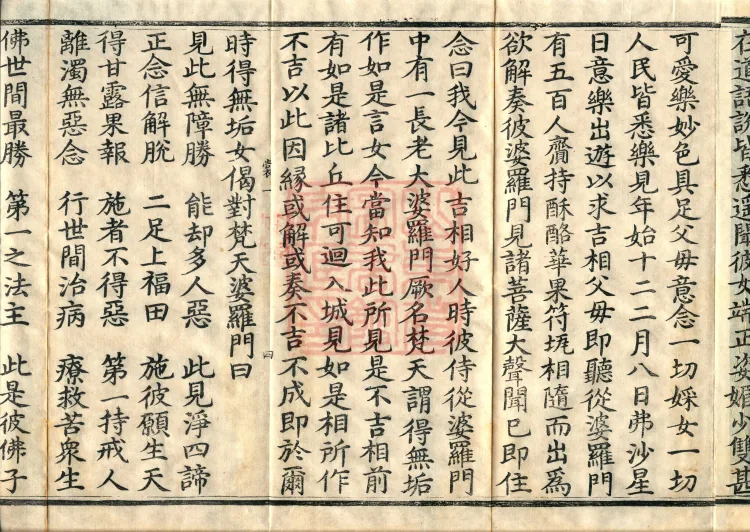 在道語說皆悉遥聞彼女端正姿媚少雙甚
可愛樂妙色具足父母意念一切婇女一切
人民皆悉樂見年始十二二月八日弗沙星
日意樂出遊以求吉相父母即聽從婆羅門
有五百人齎持酥酪華果符㼚相隨而出為
欲解奏彼婆羅門見諸菩薩大聲聞已即住
念曰我今見此吉相好人時彼侍從婆羅門
中有一長老大婆羅門厥名梵天謂得無垢
作如是言女今當知我此所見是不吉相前
有如是諸比丘住可迴入城見如是相所作
不吉以此因緣或解或奏不吉不成即於爾
裳一
四
時得無垢女偈對梵天婆羅門曰
見此無障勝　能却多人惡　此見淨四諦
正念信解脫　二足上福田　施彼願生天
得甘露果報　施者不得惡　第一持戒人
離濁無惡念　行世間治病　療救苦衆生
佛世間最勝　第一之法主　此是彼佛子